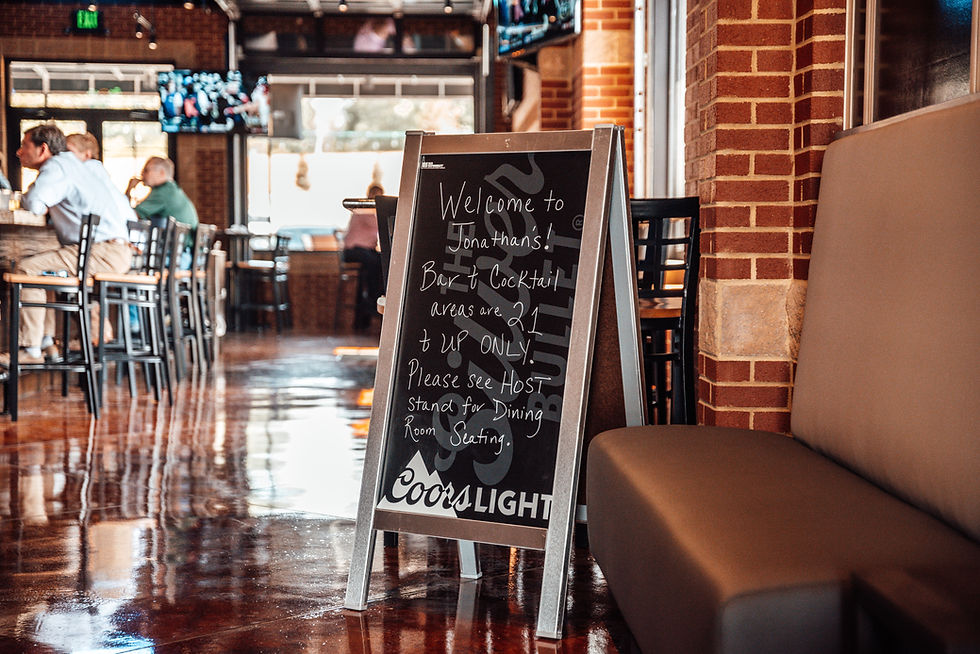 EXIT
Welcome to
Jonathan's!
Bar & Cocktail
areas are 21
& UP ONLY.
Please see HOST
stand for Dining
Room Seating.
THE
Silver
BULLET®
Coors LIGHT